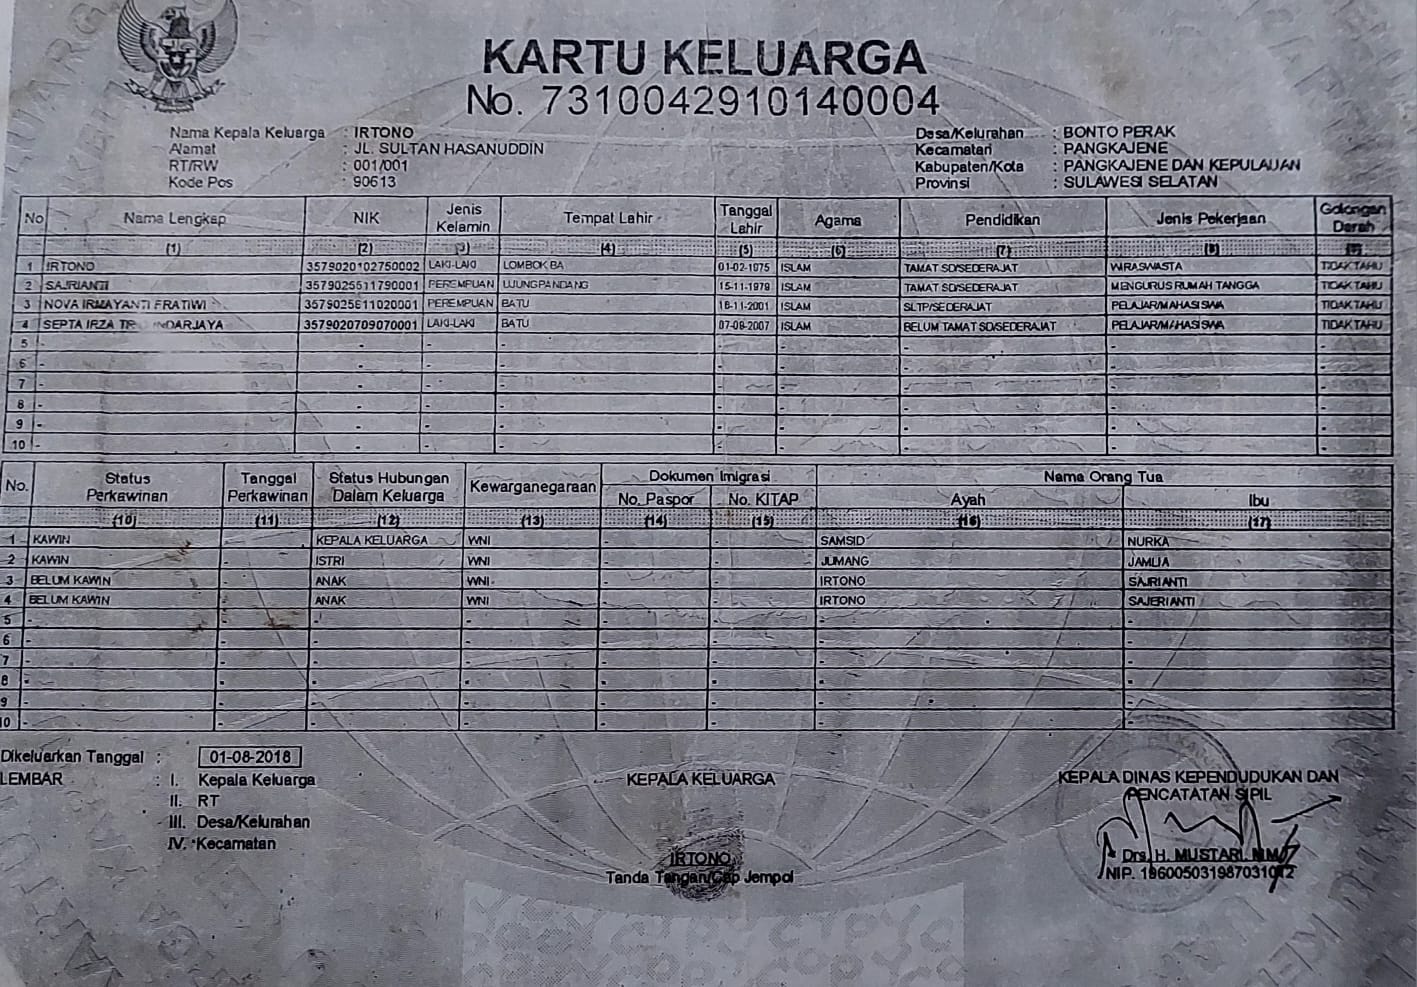 KARTU KELUARGA
No. 7310042910140004
Nama Kepala Keluarga : IRTONO
Alamat : JL. SULTAN HASANUDDIN
RT/RW : 001/001
Kode Pos : 90613
Desa/Kelurahan : BONTO PERAK
Kecamatan : PANGKAJENE
Kabupaten/Kota : PANGKAJENE DAN KEPULAUAN
Provinsi : SULAWESI SELATAN
No Nama Lengkap NIK Jenis Kelamin Tempat Lahir Tanggal Lahir Agama Pendidikan Jenis Pekerjaan Golongan Darah
(1) (2) (3) (4) (5) (6) (7) (8) (9)
1 IRTONO 3579020102750002 LAKI-LAKI LOMBOK BA 01-02-1975 ISLAM TAMAT SD/SEDERAJAT WIRASWASTA TIDAK TAHU
2 SAJRIANTI 3579025511790001 PEREMPUAN UJUNGPANDANG ISLAM TAMAT SD/SEDERAJAT MENGURUS RUMAH TANGGA TIDAK TAHU
3 NOVA IRMAYANTI FRATIWI 3579025611020001 PEREMPUAN BATU 16-11-2001 ISLAM SLTP/SEDERAJAT PELAJAR/MAHASISWA TIDAK TAHU
4 SEPTA IRZA INDARJAYA 3579020709070001 LAKI-LAKI BATU 07-09-2007 ISLAM BELUM TAMAT SD/SEDERAJAT PELAJAR/MAHASISWA TIDAK TAHU
5 - - - - - - - - -
6 - - - - - - - - -
7 - - - - - - - - -
8 - - - - - - - - -
9 - - - - - - - - -
10 - - - - - - - - -
No. Status Perkawinan Tanggal Perkawinan Status Hubungan Dalam Keluarga Kewarganegaraan Dokumen Imigrasi Nama Orang Tua
No. Paspor No. KITAP Ayah Ibu
(10) (11) (12) (13) (14) (15) (16) (17)
1 KAWIN - KEPALA KELUARGA WNI - - SAMSID NURKA
2 KAWIN - ISTRI WNI - - JUMANG JAMLIA
3 BELUM KAWIN - ANAK WNI - - IRTONO SAJRIANTI
4 BELUM KAWIN - ANAK WNI - - IRTONO SAJERIANTI
5 - - - - - - - -
6 - - - - - - - -
7 - - - - - - - -
8 - - - - - - - -
9 - - - - - - - -
10 - - - - - - - -
Dikeluarkan Tanggal : 01-08-2018
LEMBAR : I. Kepala Keluarga
II. RT
III. Desa/Kelurahan
IV. Kecamatan
KEPALA KELUARGA
IRTONO
Tanda Tangan/Cap Jempol
KEPALA DINAS KEPENDUDUKAN DAN
PENCATATAN SIPIL
Drs. H. MUSTARI. MM
NIP. 196005031987031012
COPY COPY